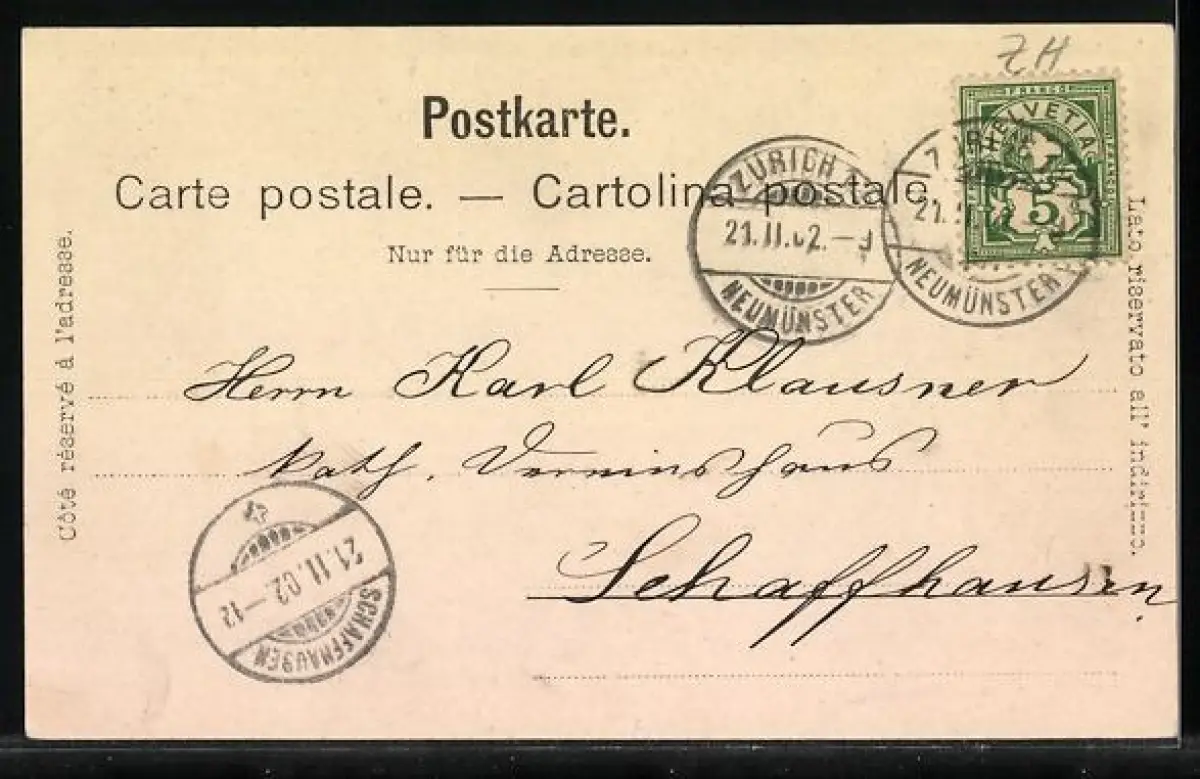 ZH
FRANCO
HELVETIA
5
FRANCO
Postkarte.
Carte postale. — Cartolina postale.
Nur für die Adresse.
ZÜRICH
21.II.02.–9
NEUMÜNSTER
21.II.02
NEUMÜNSTER
Côté réservé à l'adresse.
Lato riservato all' indirizzo.
Herrn Karl Klausner
Kath. Vereinshaus
Schaffhausen.
21.II.02.–12
SCHAFFHAUSEN